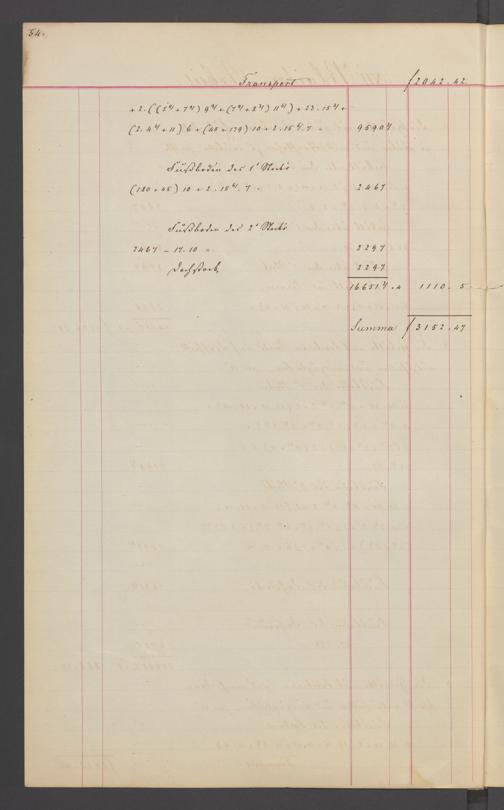 54.
Transport ƒ 2042.42
+ 2.((5⁴+7⁴) 9⁴ + (7⁴+8⁴) 11⁴) + 23.15⁴ +
(2.4⁴+11) 6 + (45+179) 10 + 2.15⁴.7 = 9590⁴
Fußboden des 1ᵗ Stocks
(180+45) 10 + 2.15⁴.7 = 2467
Fußboden des 2ᵗ Stocks
2467 – 17.10 = 2297
Dachstock 2297
16651⁴ 1110.5
Summa ƒ 3152.47